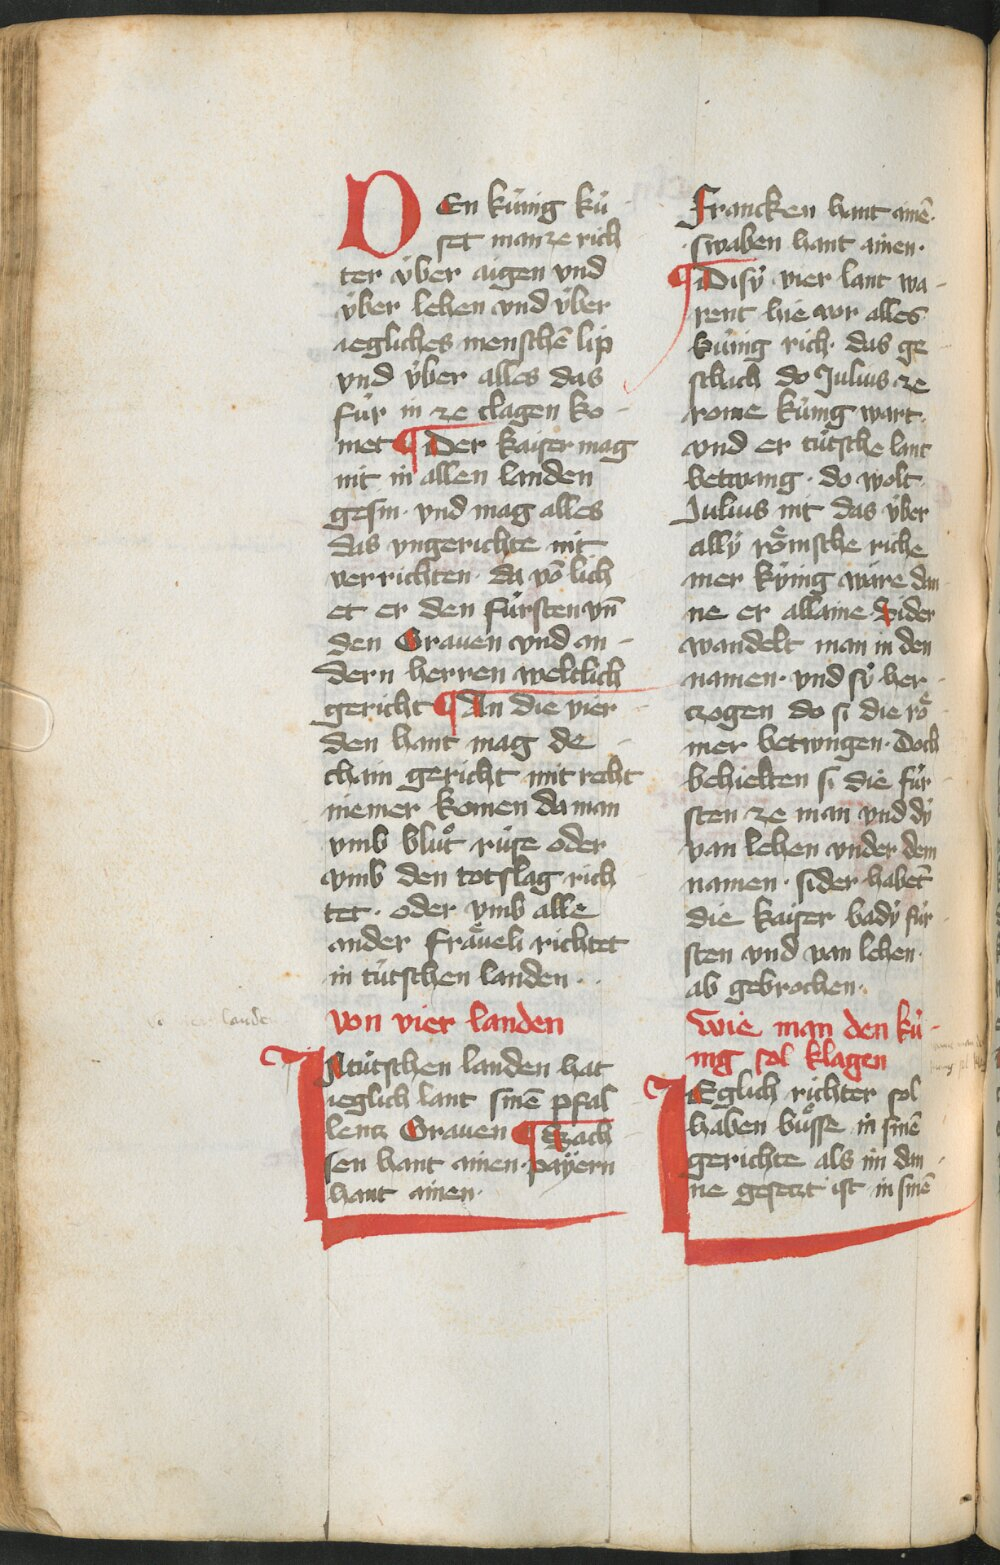 DEn kúnig kú
set man ze rich
ter v́ber aigen vnd
v́ber lehen vnd v́ber
iegliches menschē lip
vnd v́ber alles das
fúr in ze clagen ko
met ¶ Der kaiser mag
nit in allen landen
gesin · vnd mag alles
das vngerichte nit
verrichten · da vō lich
et er den fúrsten vn̄
den Grauen vnd an
dern herren weltlich
gericht ¶ An die vier
den hant mag de
chain gericht mit recht
niemer komen da man
vmb blůt rúse oder
vmb den totslag rich
tet · oder vmb alle
ander fraͤueli richtet
in tútschen landen ·
von vier landen
IN tútschen landen hat
ieglich lant sinē pfal
lentz Grauen ¶ Sach
sen hant ainen · payern
hant ainen ·
Francken hant ainē ·
swaben hant ainen ·
¶ Disý vier lant wa
rent hie vor alles
kúnig rich · das ge
schach do Julius ze
rome kúnig wart ·
vnd er tútsche lant
betwang · do wolt
Julius nit das v́ber
allý roͤmsche riche
mer kýing wăre dan
ne er allaine · Sider
wandelt man in den
namen · vnd sý her
tzogen do si die roͤ
mer betwngen · Doch
behielten si die fúr
sten ze man vnd dý
van lehen vnder dem
namen · sider habēt
die kaiser badý fúr
sten vnd van lehen ·
ab gebrochen ·
wie man den kú
nig sol klagen
IEglich richter sol
haben bůsse in sinē
gerichte als im dan
ne gesetzt ist in sinē